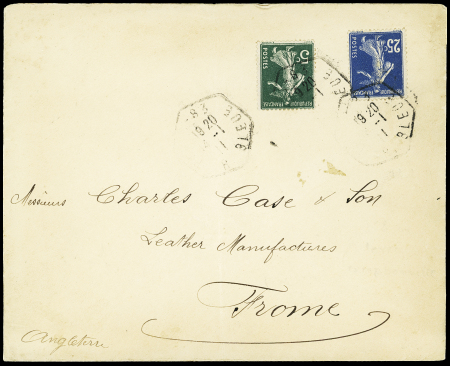 5c
POSTES
REPUBLIQUE FRANCAISE
25c
POSTES
REPUBLIQUE FRANCAISE
BLEUE
19 20
Messieurs Charles Case & Son
Leather Manufactures
Frome
Angleterre